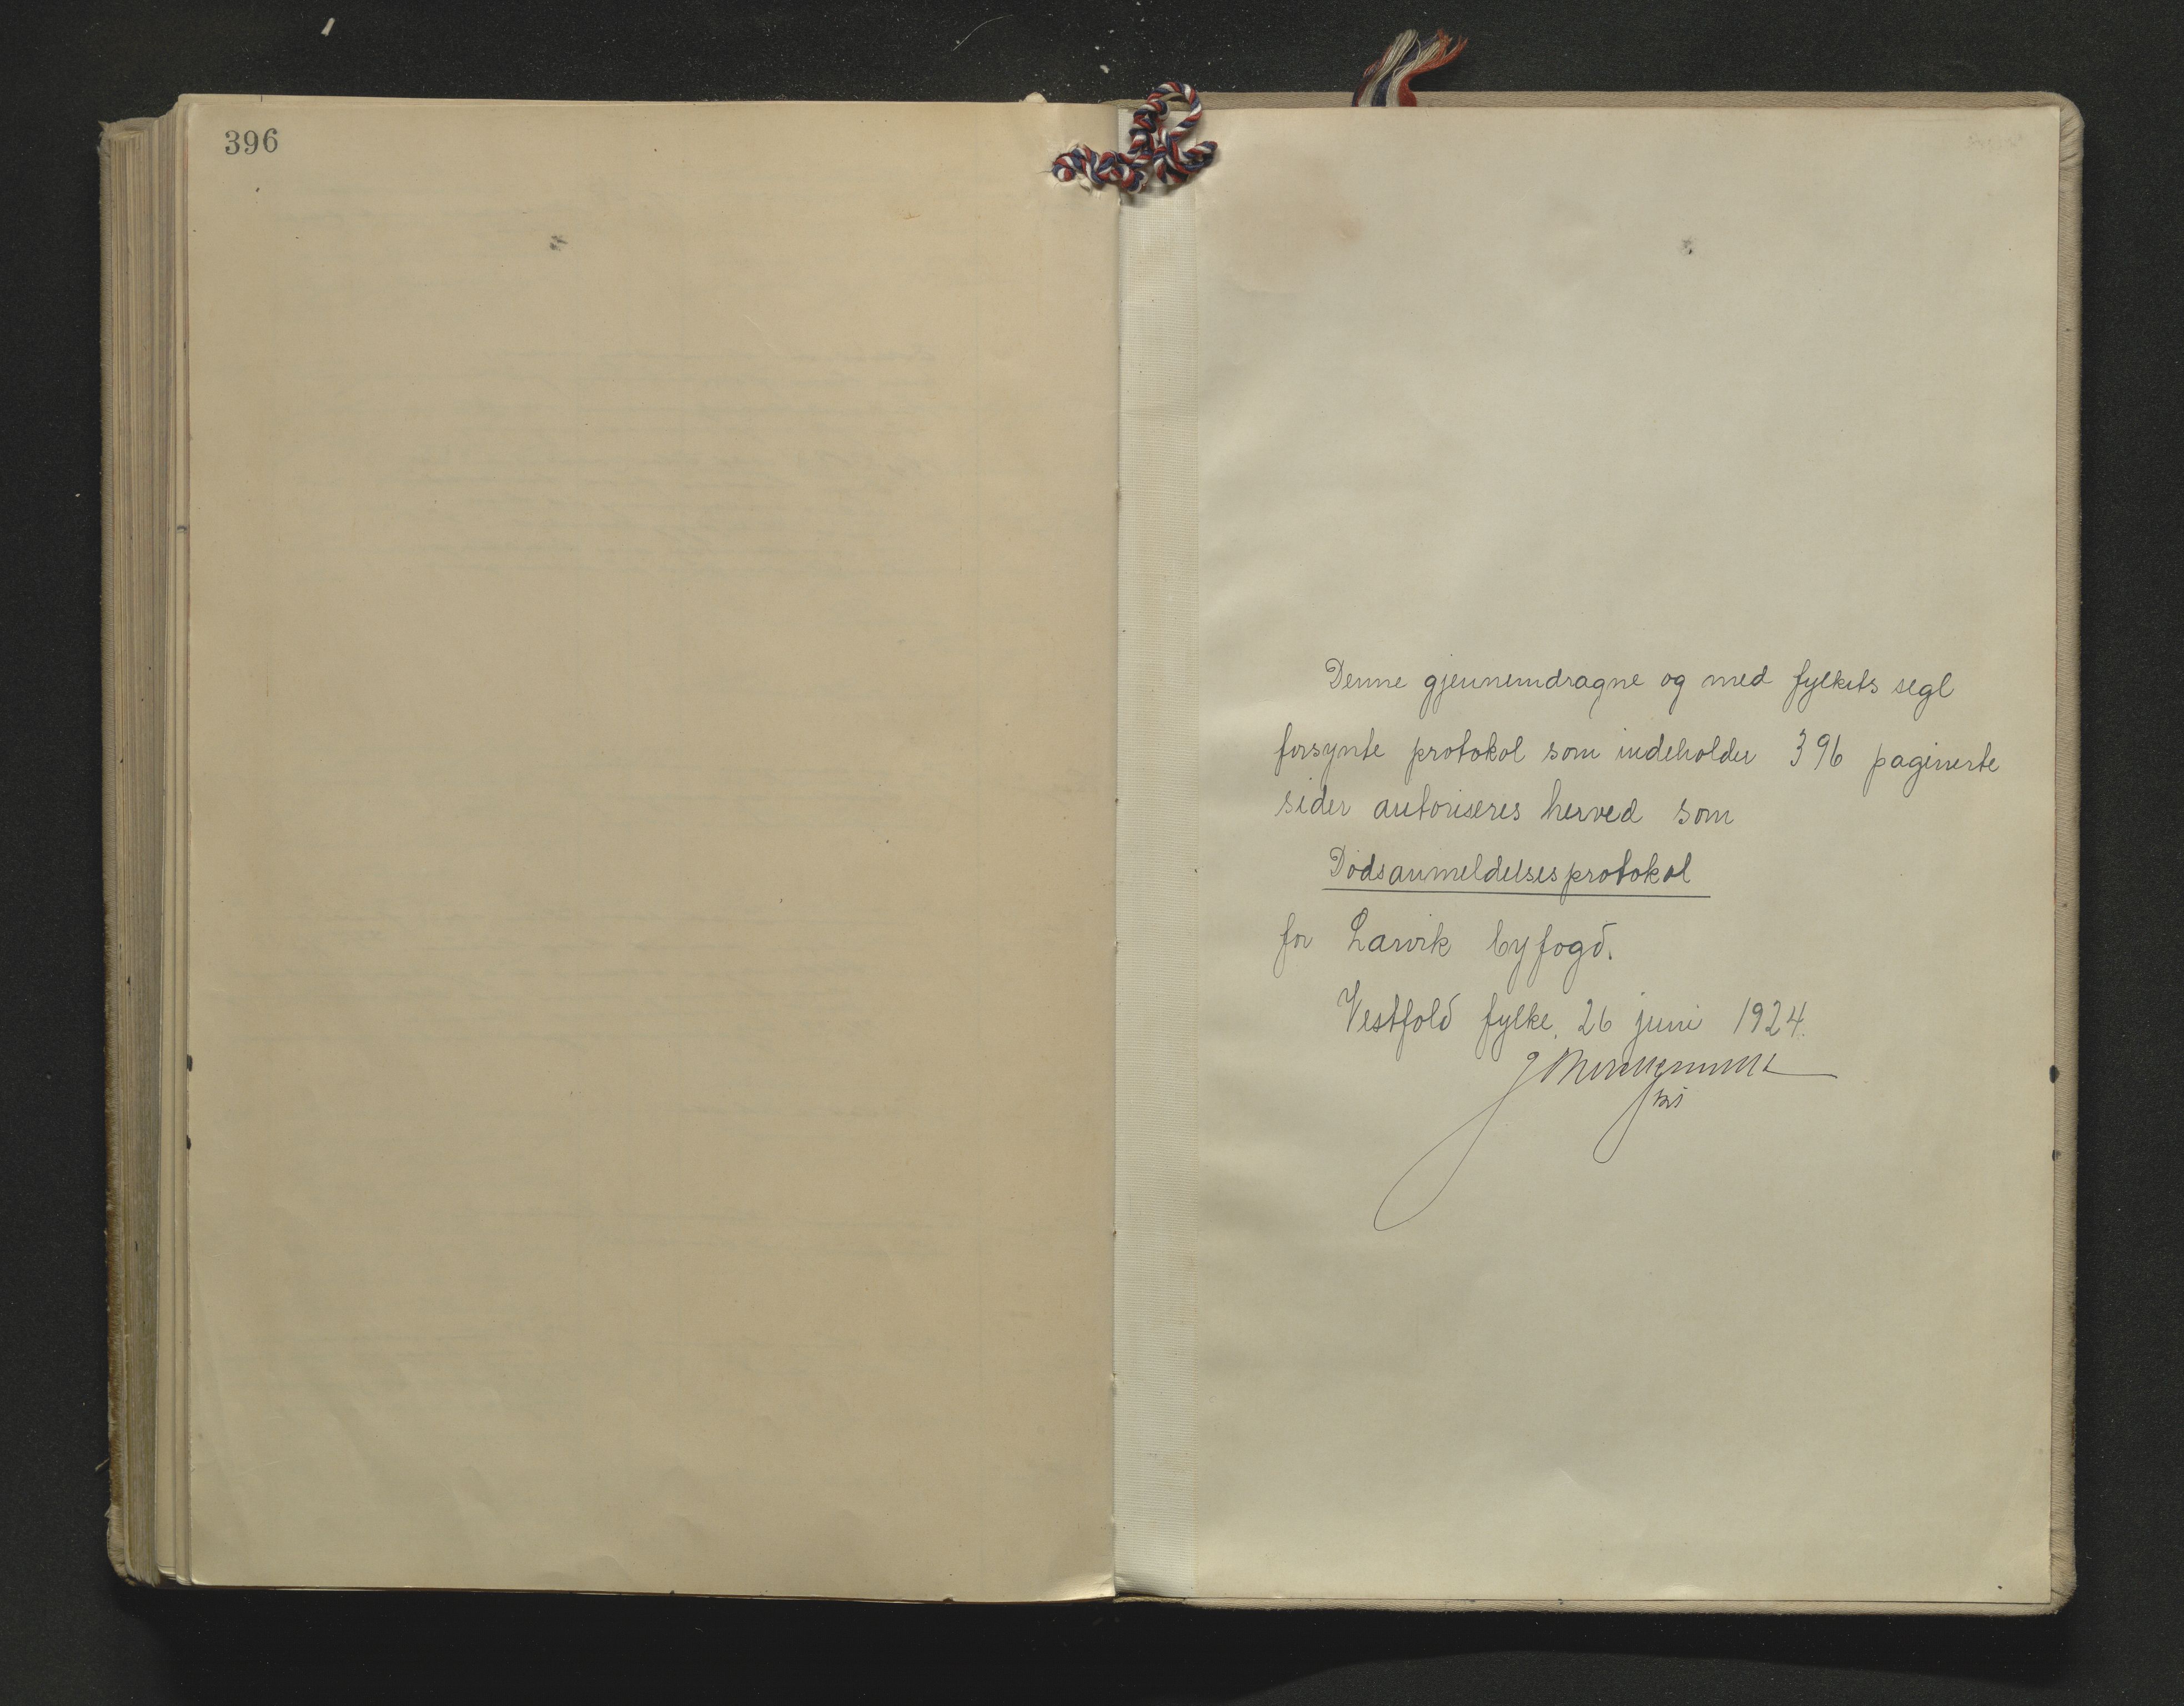 396
Denne gjennemdragne og med fylkets segl
forsynte protokol som indeholder 396 paginerte
sider autoriseres herved som
Dødsanmeldelsesprotokol
for Larvik byfogd.
Vestfold fylke, 26 juni 1924.